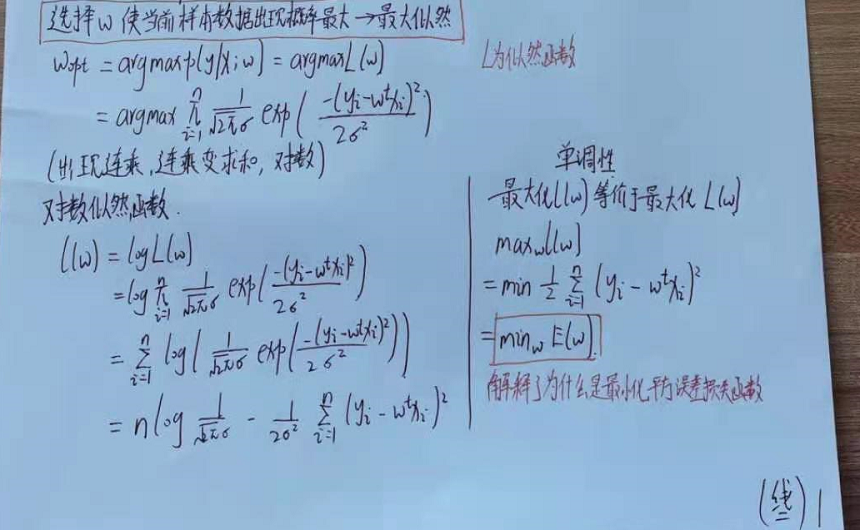 选择w 使当前样本数据出现概率最大 → 最大似然
w_opt = argmax p(y|x;w) = argmax L(w)
L为似然函数
= argmax ∏_{i=1}^{n} 1/(√2π σ) exp( -(y_i - w^t x_i)² / 2σ² )
(出现连乘,连乘变求和,对数)
对数似然函数.
l(w) = log L(w)
= log ∏_{i=1}^{n} 1/(√2π σ) exp( -(y_i - w^t x_i)² / 2σ² )
= ∑_{i=1}^{n} log( 1/(√2π σ) exp( -(y_i - w^t x_i)² / 2σ² ) )
= n log 1/(√2π σ) - 1/2σ² ∑_{i=1}^{n} (y_i - w^t x_i)²
单调性
最大化l(w) 等价于最大化 L(w)
max_w l(w)
= min 1/2 ∑_{i=1}^{n} (y_i - w^t x_i)²
= min_w E(w).
解释了为什么是最小化平方误差损失函数
(线二) 1